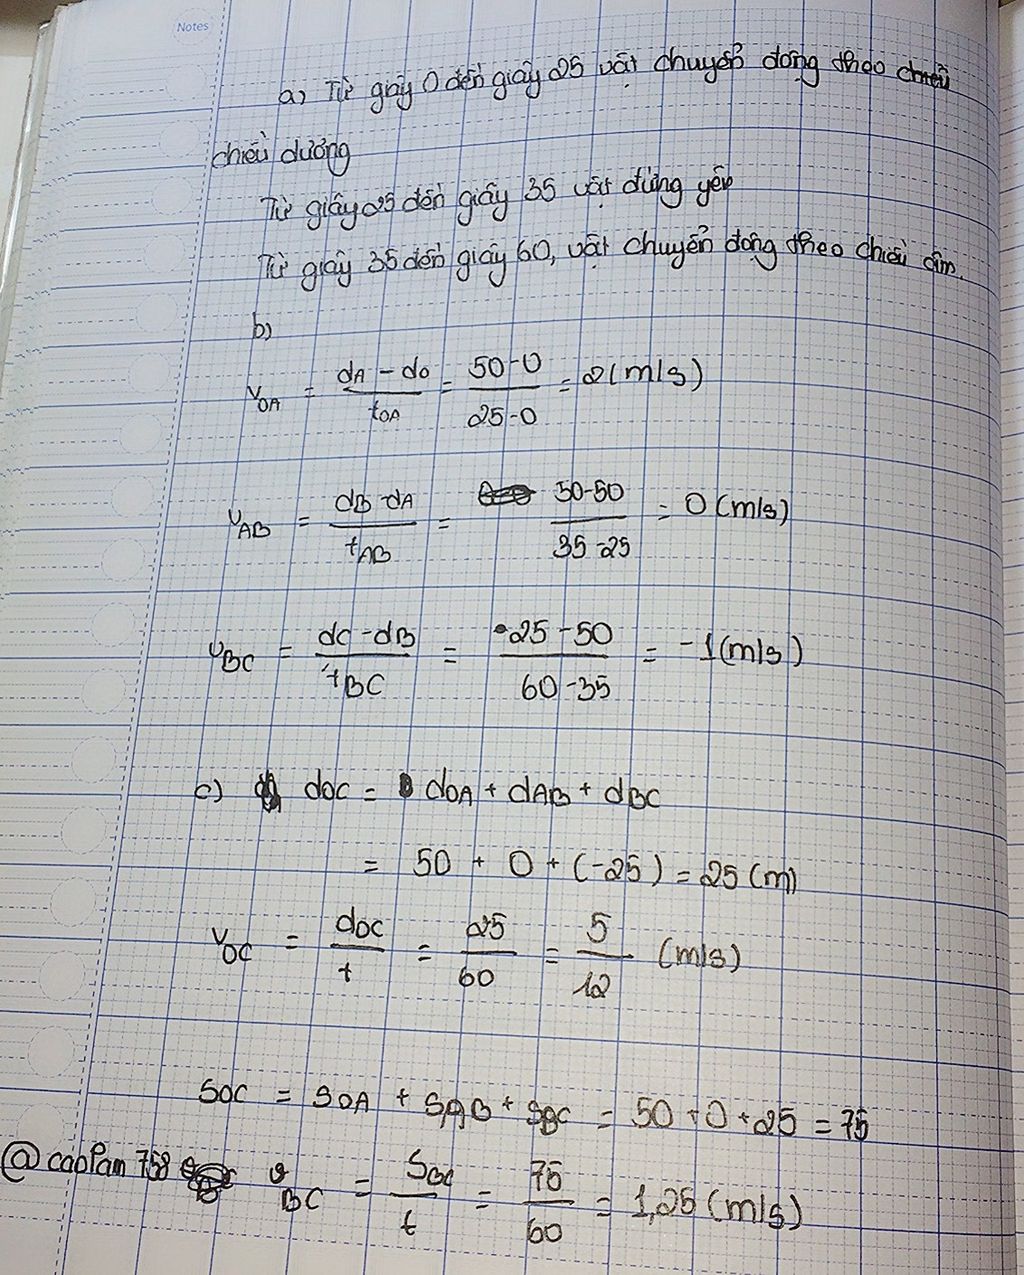 Notes
a) Từ giây 0 đến giây 25 vật chuyển động theo
chiều dương
Từ giây 25 đến giây 35 vật đứng yên
Từ giây 35 đến giây 60, vật chuyển động theo chiều âm.
b)
v_OA = (dA - dO)/t_OA = (50-0)/(25-0) = 2 (m/s)
v_AB = (dB - dA)/t_AB = (50-50)/(35-25) = 0 (m/s)
v_BC = (dC - dB)/t_BC = (25-50)/(60-35) = -1 (m/s)
c) dOC = dOA + dAB + dBC
= 50 + 0 + (-25) = 25 (m)
v_OC = dOC/t = 25/60 = 5/12 (m/s)
SOC = SOA + SAB + SBC = 50 + 0 + 25 = 75
@caoPam 758 v_BC = /t = 75/60 = 1,25 (m/s)